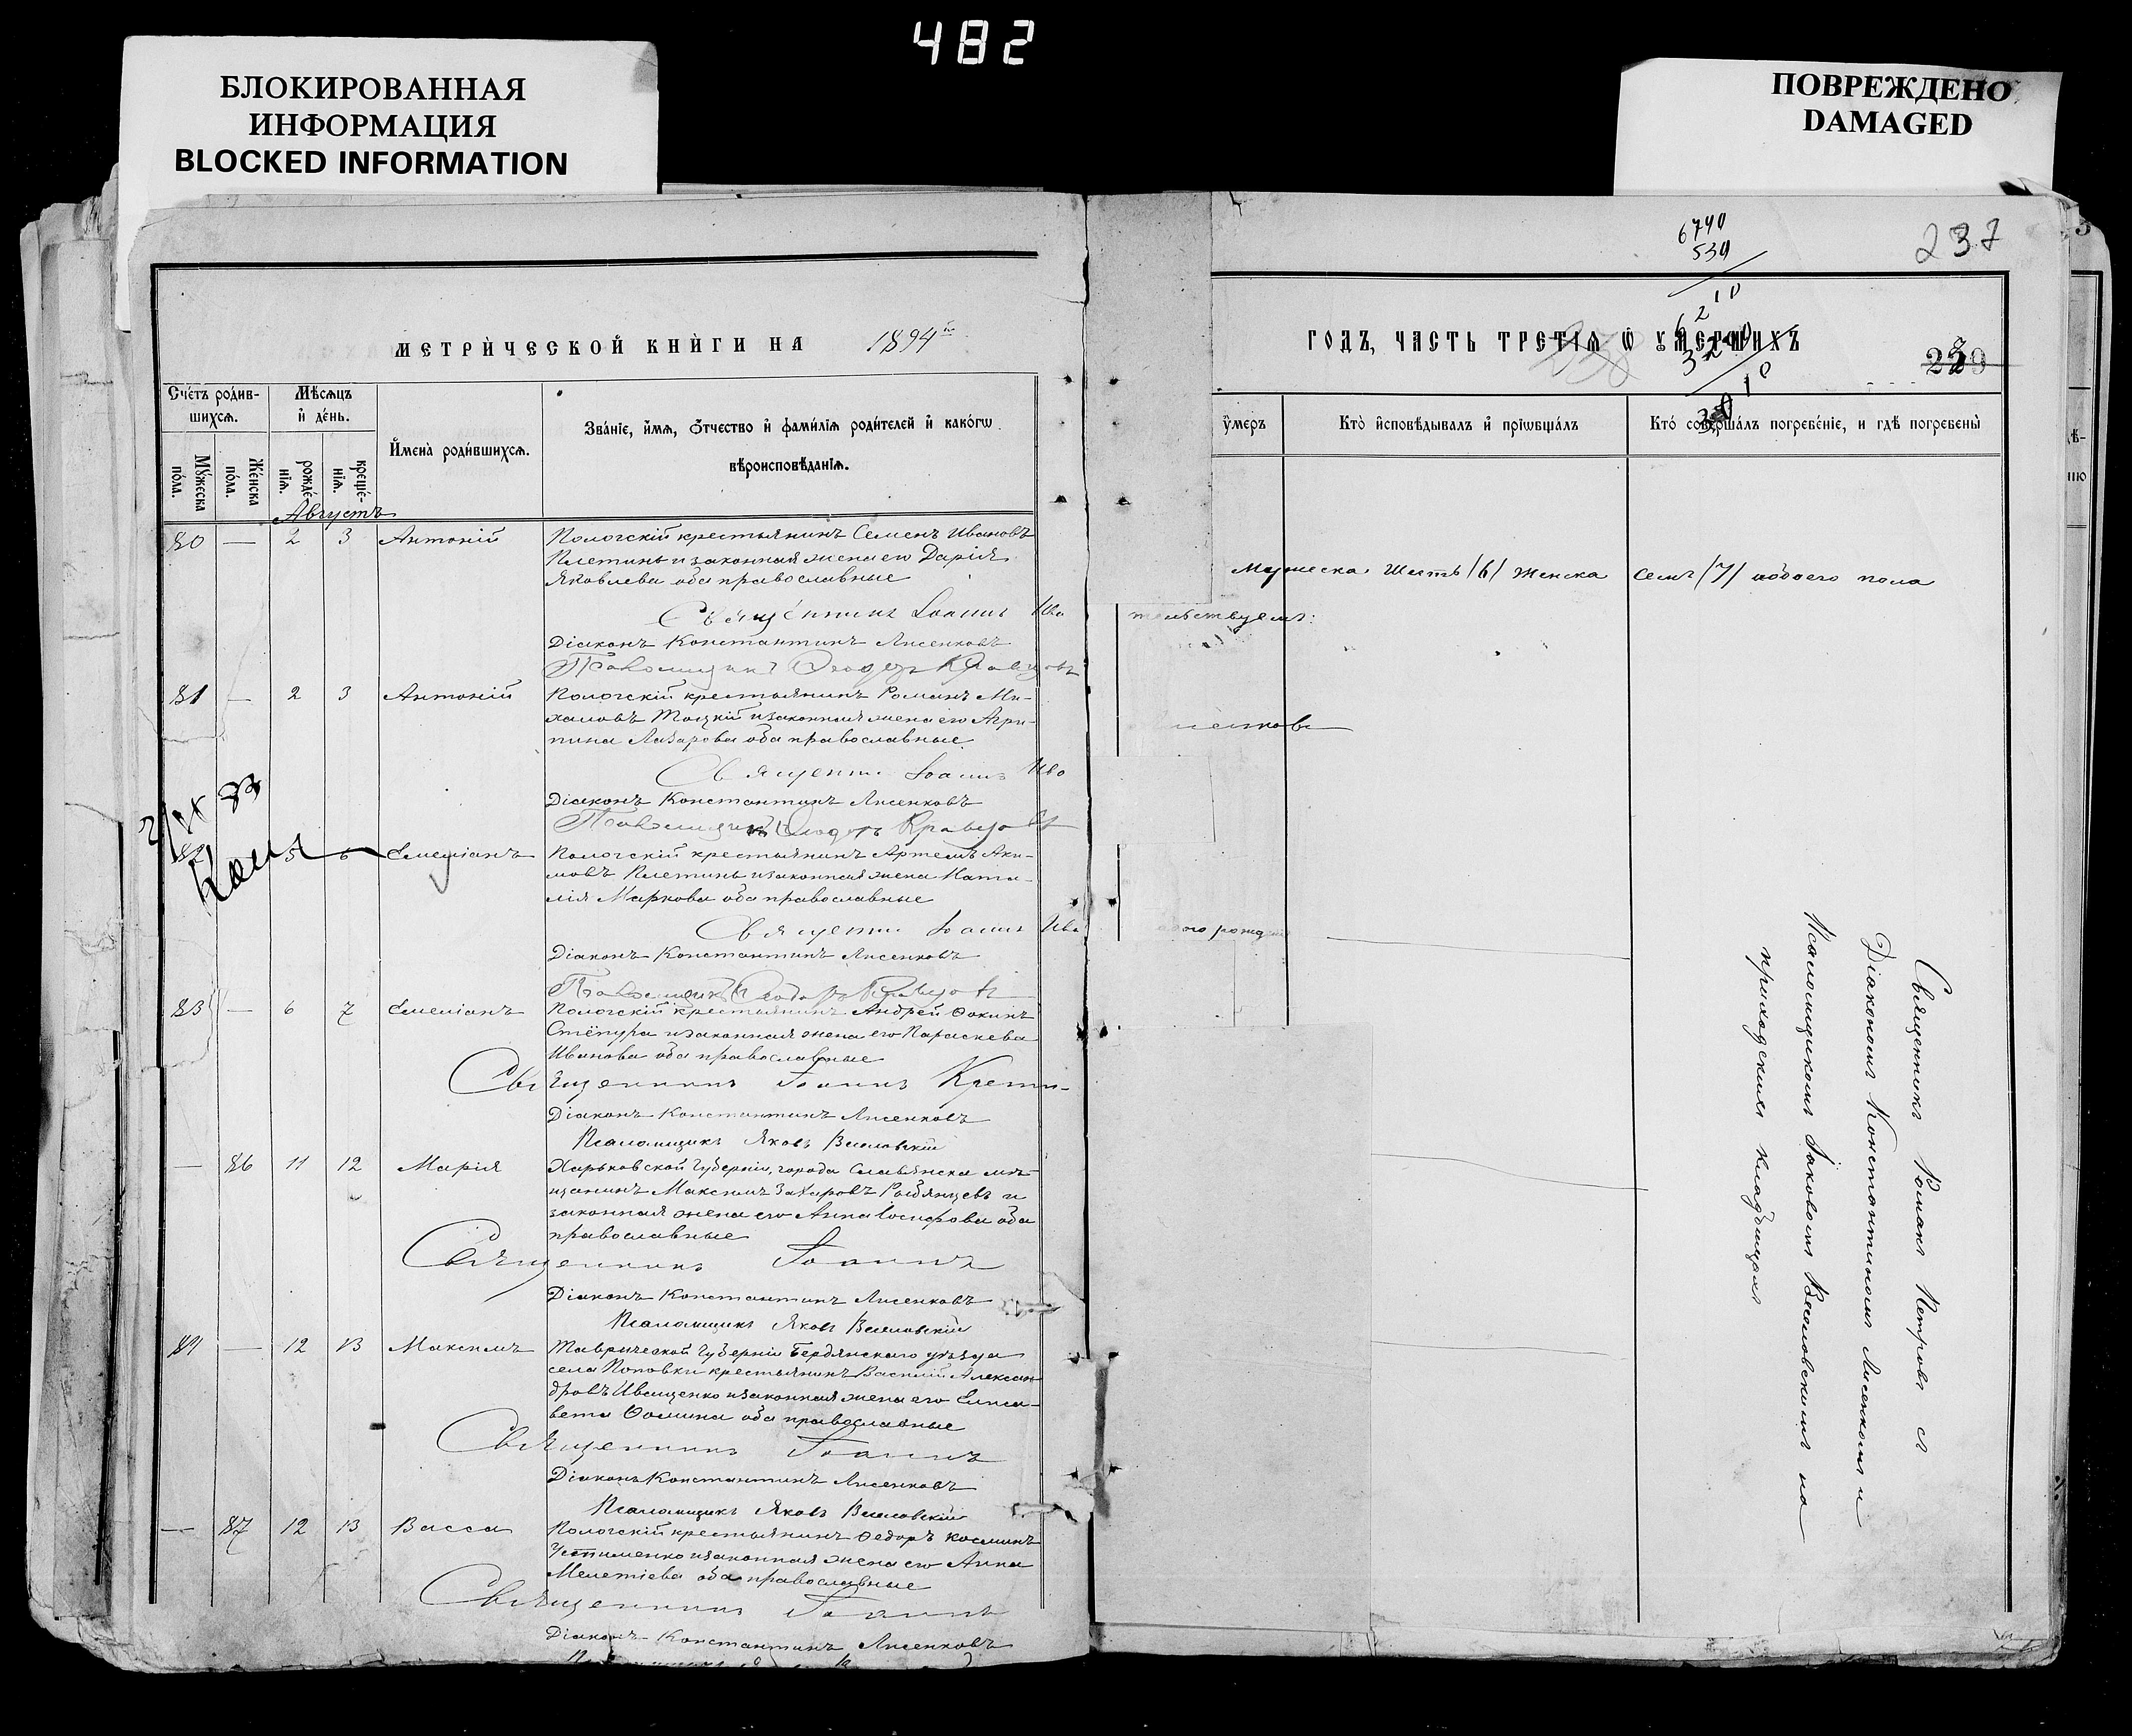 482
БЛОКИРОВАННАЯ
ИНФОРМАЦИЯ
BLOCKED INFORMATION
ПОВРЕЖДЕНО
DAMAGED
МЕТРИ́ЧЕСКОЙ КНИ́ГИ НА 1894й
Сче́тъ роди́в-
шихсѧ.
Мѣ́сѧцъ
и҆ де́нь.
И҆мена̀ роди́вшихсѧ.
Зва́нїе, и҆́мѧ, ѻ҆́тчество и҆ фами́лїѧ роди́телей и҆ како́гѡ
вѣроисповѣ́данїѧ.
Мꙋ́жеска
по́ла.
Же́нска
по́ла.
рожде́-
нїѧ.
креще́-
нїѧ.
Августъ
80 — 2 3 Антоній Пологскій крестьянинъ Семенъ Ивановъ
Плетинь и законная жена его Дарія
Яковлева оба православные
Священникъ Іоаннъ
Діаконъ Константинъ Лисенковъ
Псаломщикъ Ѳеодоръ Кравцовъ
81 — 2 3 Антоній Пологскій крестьянинъ Романъ Ми-
хаиловъ Тоцкій и законная жена его Агри-
пина Лазарова оба православные
Священни Іоаннъ
Діаконъ Константинъ Лисенковъ
Псаломщикъ Ѳеодоръ Кравцовъ
5 6 Емеліанъ Пологскій крестьянинъ Артемъ Аки-
мовъ Плетинь и законная жена Ната-
лія Маркова оба православные
Священни Іоаннъ
Діаконъ Константинъ Лисенковъ
Псаломщикъ Ѳеодоръ Кравцовъ
83 — 6 7 Емеліанъ Пологскій крестьянинъ Андрей Ѳокинъ
Стёпура и законная жена его Параскева
Иванова оба православные
Священникъ Іоаннъ
Діаконъ Константинъ Лисенковъ
Псаломщикъ Яковъ Веселовскій
— 86 11 12 Марія Харьковской Губерніи, города Славянска мѣ-
щанинъ Максимъ Захаровъ и
законная жена его Анна Іосифова оба
православные
Священникъ Іоаннъ
Діаконъ Константинъ Лисенковъ
Псаломщикъ Яковъ Веселовскій
84 — 12 13 Максимъ Таврической Губерніи Бердянскаго уѣзда
села Поповки крестьянинъ Василій Алексан-
дровъ Иващенко и законная жена его Елиса-
вета Ѳомина оба православные
Священникъ Іоаннъ
Діаконъ Константинъ Лисенковъ
Псаломщикъ Яковъ Веселовскій
— 87 12 13 Васса Пологскій крестьянинъ Ѳедоръ Косминъ
Устименко и законная жена его Анна
Мелетіева оба православные
Священникъ Іоаннъ
Діаконъ Константинъ Лисенковъ
237
6740
539
ГОДЪ, ЧАСТЬ ТРЕТІѦ Ѡ҆ ОУ҆МЕРШИХЪ
у҆́меръ
Кто̀ и҆сповѣ́дывалъ и҆ прїѡбща́лъ
Кто́ соверша́лъ погребе́нїе, и гдѣ̀ погребены̀
Мужеска Шесть /6/ Женска семь /7/ обоего пола
тельствуемъ:
Священникъ Романъ Петровъ съ
Діакономъ Константиномъ Лисенковымъ и
Псаломщикомъ Іаковомъ Веселовскимъ на
приходскихъ кладбищахъ